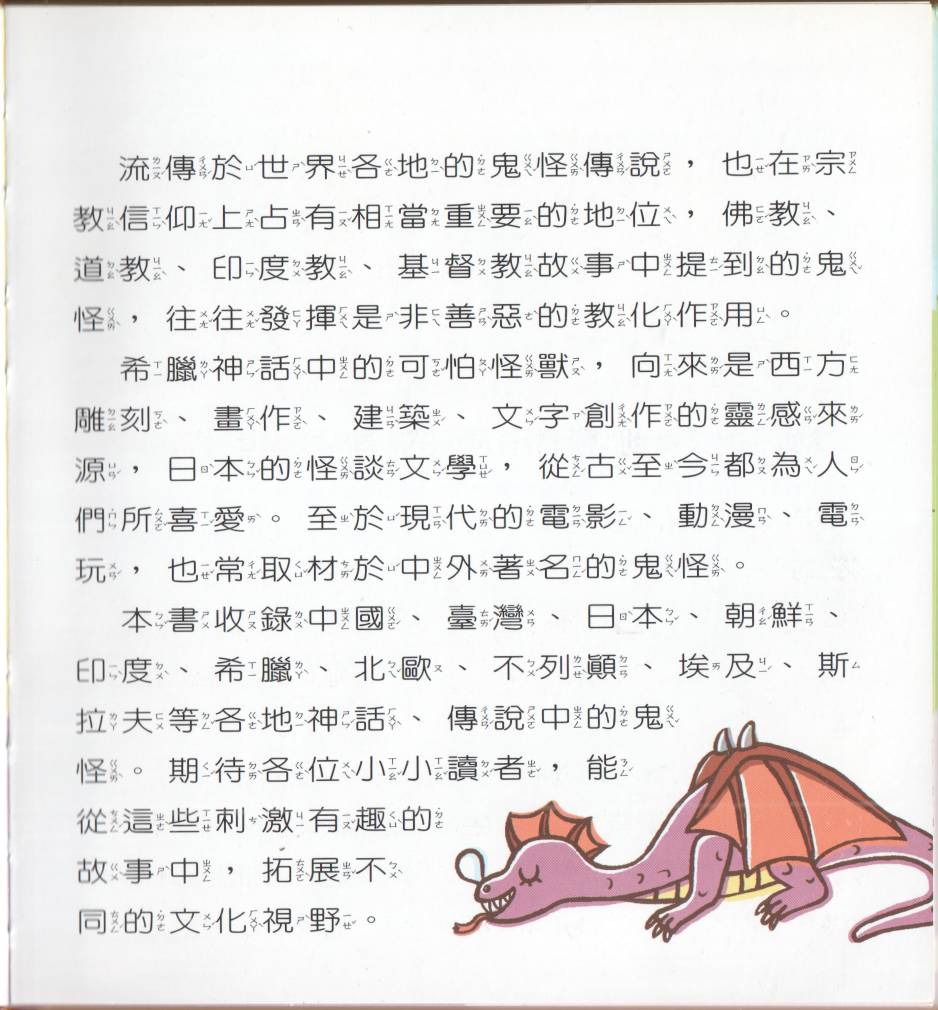 流傳於世界各地的鬼怪傳說，也在宗
教信仰上占有相當重要的地位，佛教、
道教、印度教、基督教故事中提到的鬼
怪，往往發揮是非善惡的教化作用。
希臘神話中的可怕怪獸，向來是西方
雕刻、畫作、建築、文字創作的靈感來
源，日本的怪談文學，從古至今都為人
們所喜愛。至於現代的電影、動漫、電
玩，也常取材於中外著名的鬼怪。
本書收錄中國、臺灣、日本、朝鮮、
印度、希臘、北歐、不列顛、埃及、斯
拉夫等各地神話、傳說中的鬼
怪。期待各位小小讀者，能
從這些刺激有趣的
故事中，拓展不
同的文化視野。